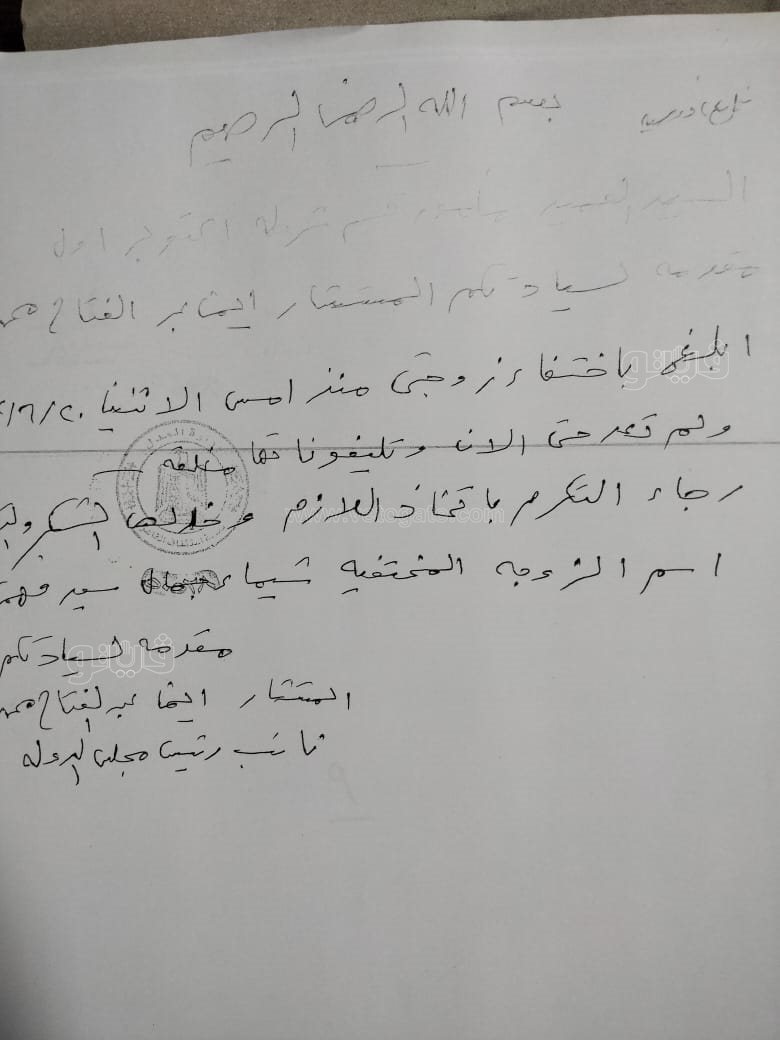 بسم الله الرحمن الرحيم
السيد العميد مأمور قسم شرطه اكتوبر اول
مقدمه لسيادتكم المستشار ايمن عبد الفتاح
ابلغكم باختفاء زوجتى منذ امس الاثنين
ولم تعد حتى الان وتليفوناتها مغلقه
رجاء التكرم باتخاذ اللازم وخالص الشكر
اسم الزوجه المختفيه شيماء جمال سيد فهمى
مقدمه لسيادتكم
المستشار ايمن عبد الفتاح
نائب رئيس مجلس الدوله
فايتو
www.vetogate.com
فايتو